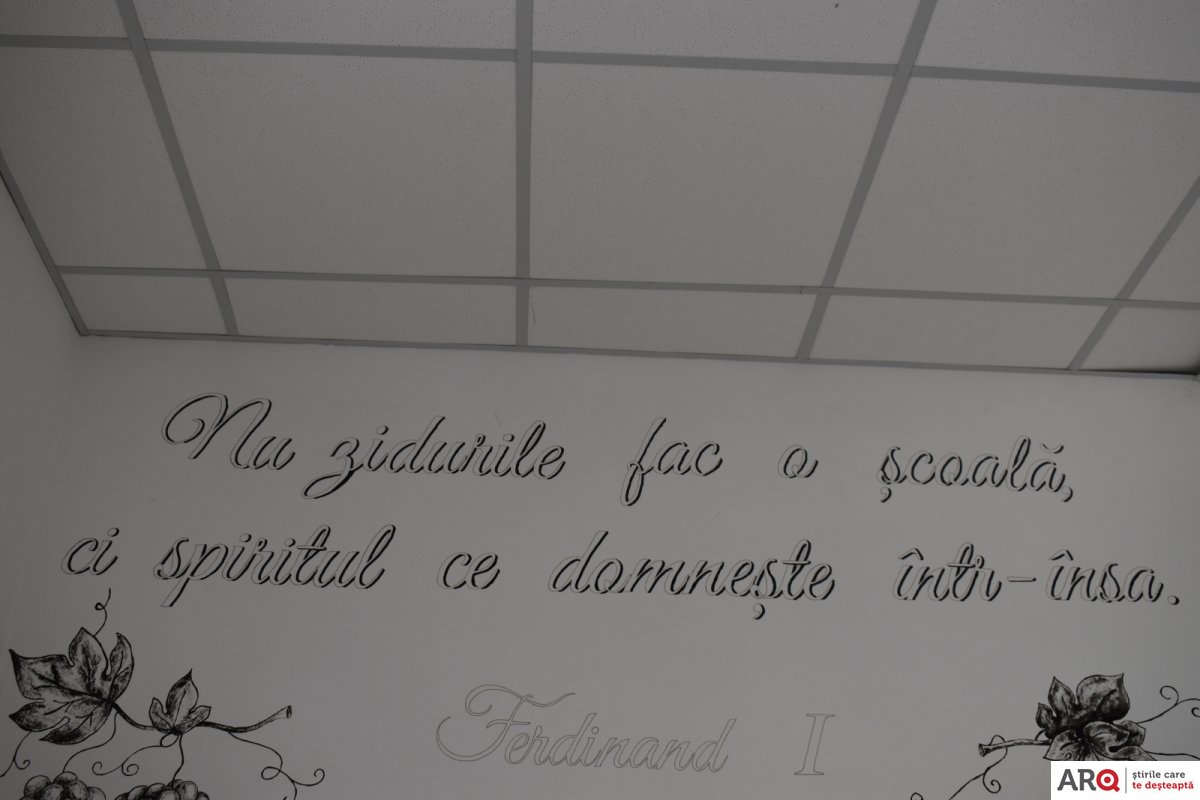 Nu zidurile fac o școală,
ci spiritul ce domnește într-însa.
Ferdinand I
ARQ știrile care
te deșteaptă